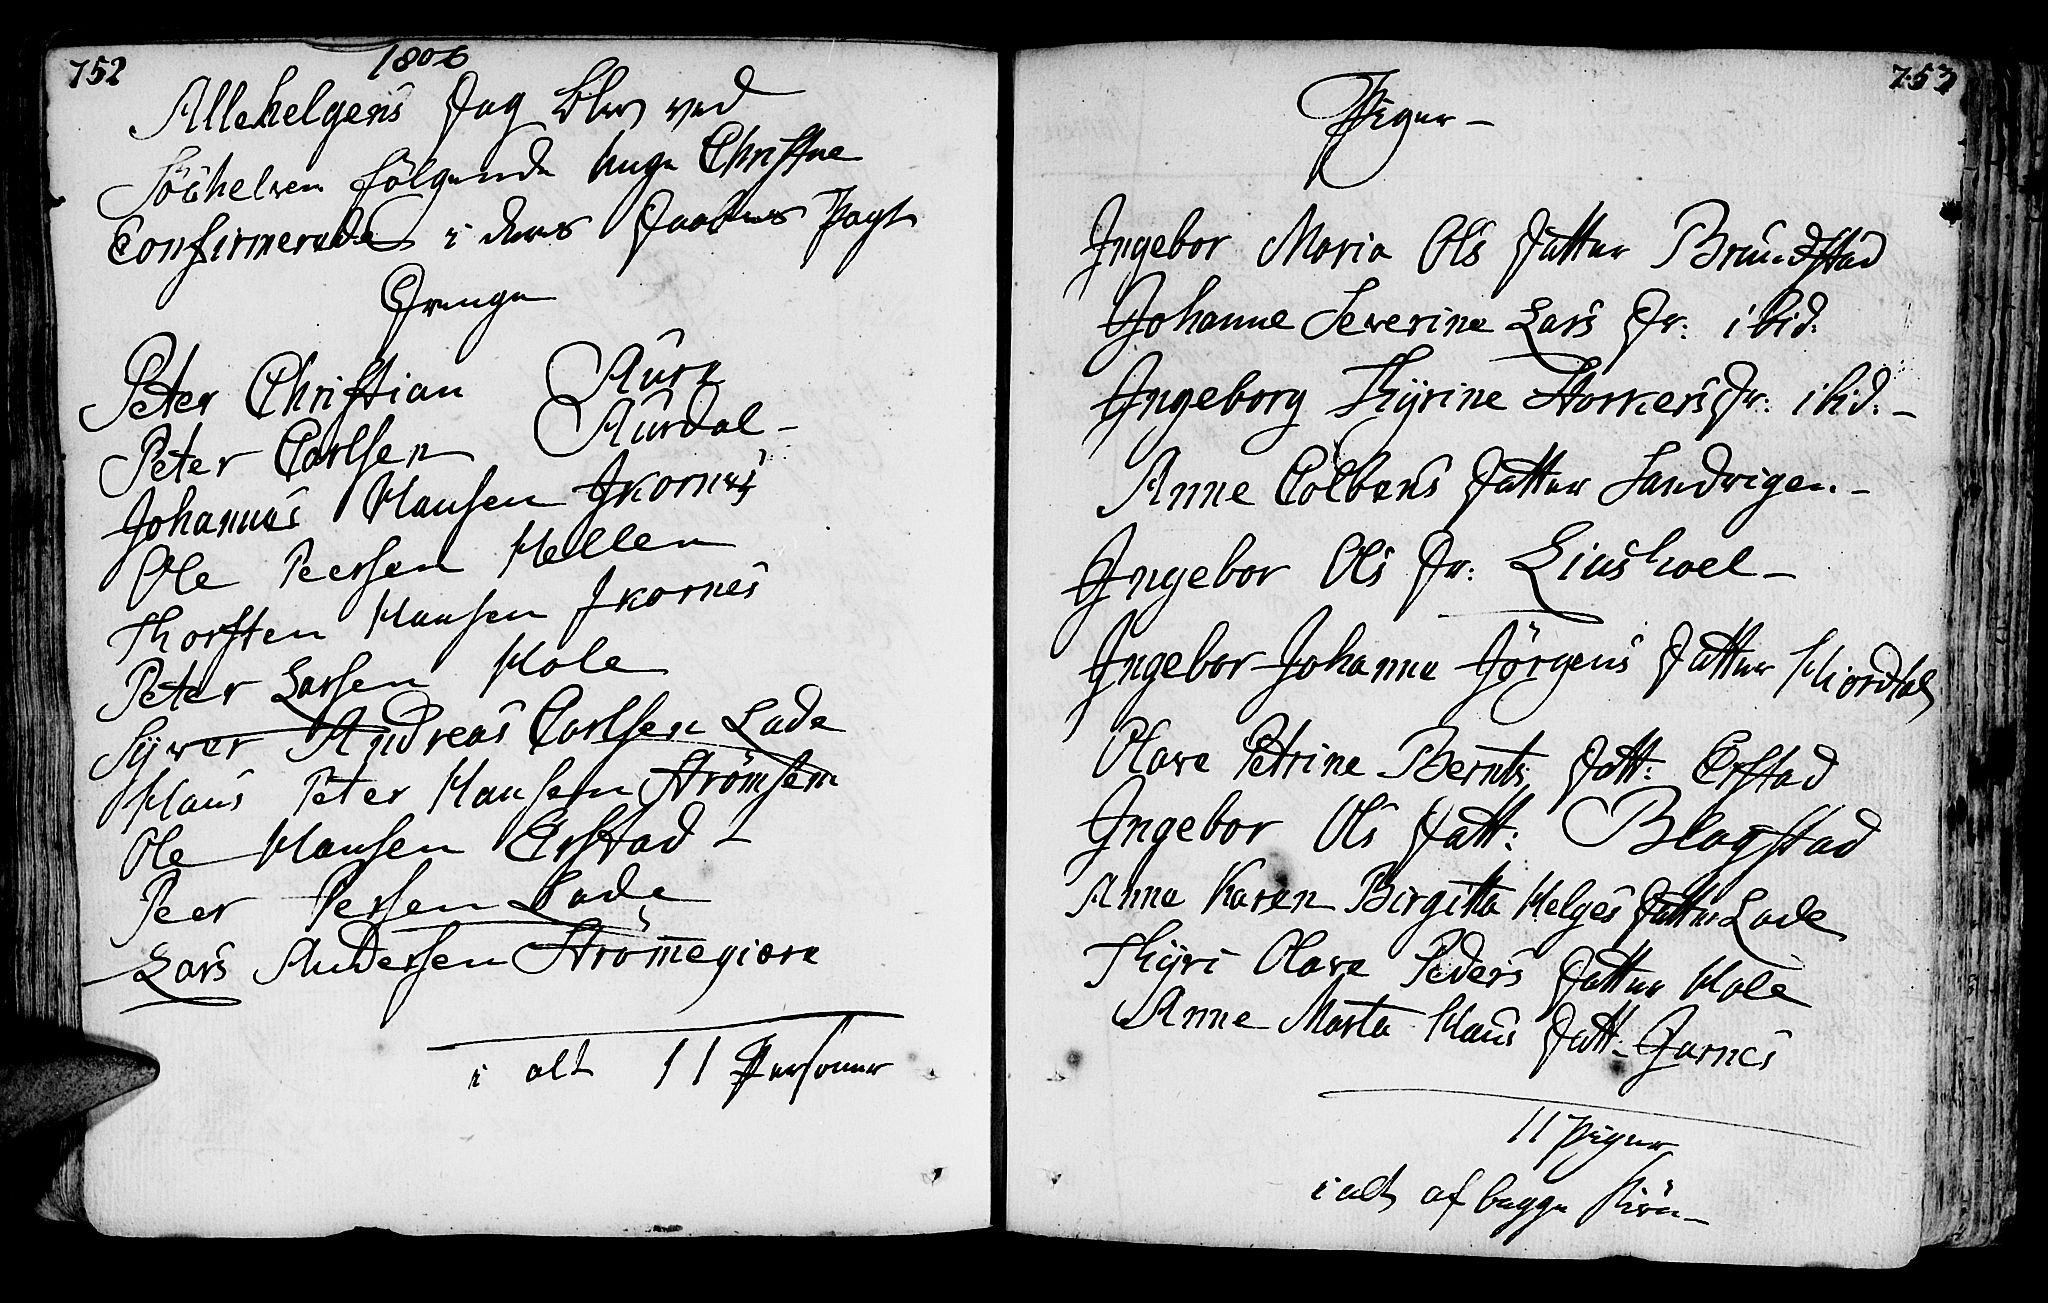 752
1806
Allehelgens Dag blev ved
Söchelven følgende unge Christne
Confirmerede i deres Daabes Pagt
Drenge
Peter Christian Aure
Peter Carlsen Aurdal -
Johannes Hansen Ikornes
Ole Peersen Hellen
Thorsten Hansen Ikornes
Peter Larsen Hole
Syver Andreas Carlsen Lade
Hans Peter Hansen Strømsem
Ole Hansen Erstad -
Peer Persen Lade
Lars Andersen Strömegiære
i alt 11 Personer
753
Piger -
Ingebor Maria Ols Datter Brundstad
Johanne Severine Lars Dr: ibid:
Ingeborg Kyrine Storkers Dr: ibid: -
Anne Colbens Datter Sandvigen. -
Ingebor Ols Dr: Liushoel -
Ingebor Johanne Jörgens Datter Hiordal
Olave Petrine Bernts Datt: Erstad
Ingebor Ols Datt: Blagstad
Anne Karen Birgitta Helges Datter Lade
Kyri Olave Peders Datter Hole
Anne Marta Hans Datt: Jarnes
11 Piger
i alt af begge Kiön -